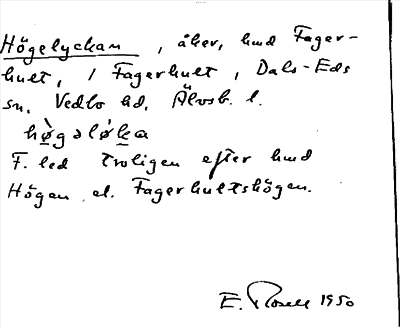 Högelyckan, åker, hmd Fager-
hult, i Fagerhult, Dals-Eds
sn, Vedbo hd, Älvsb. l.
hø̀gəlǿka
F. led troligen efter hmd
Högan el. Fagerhultshögen.
E. Rosell 1950